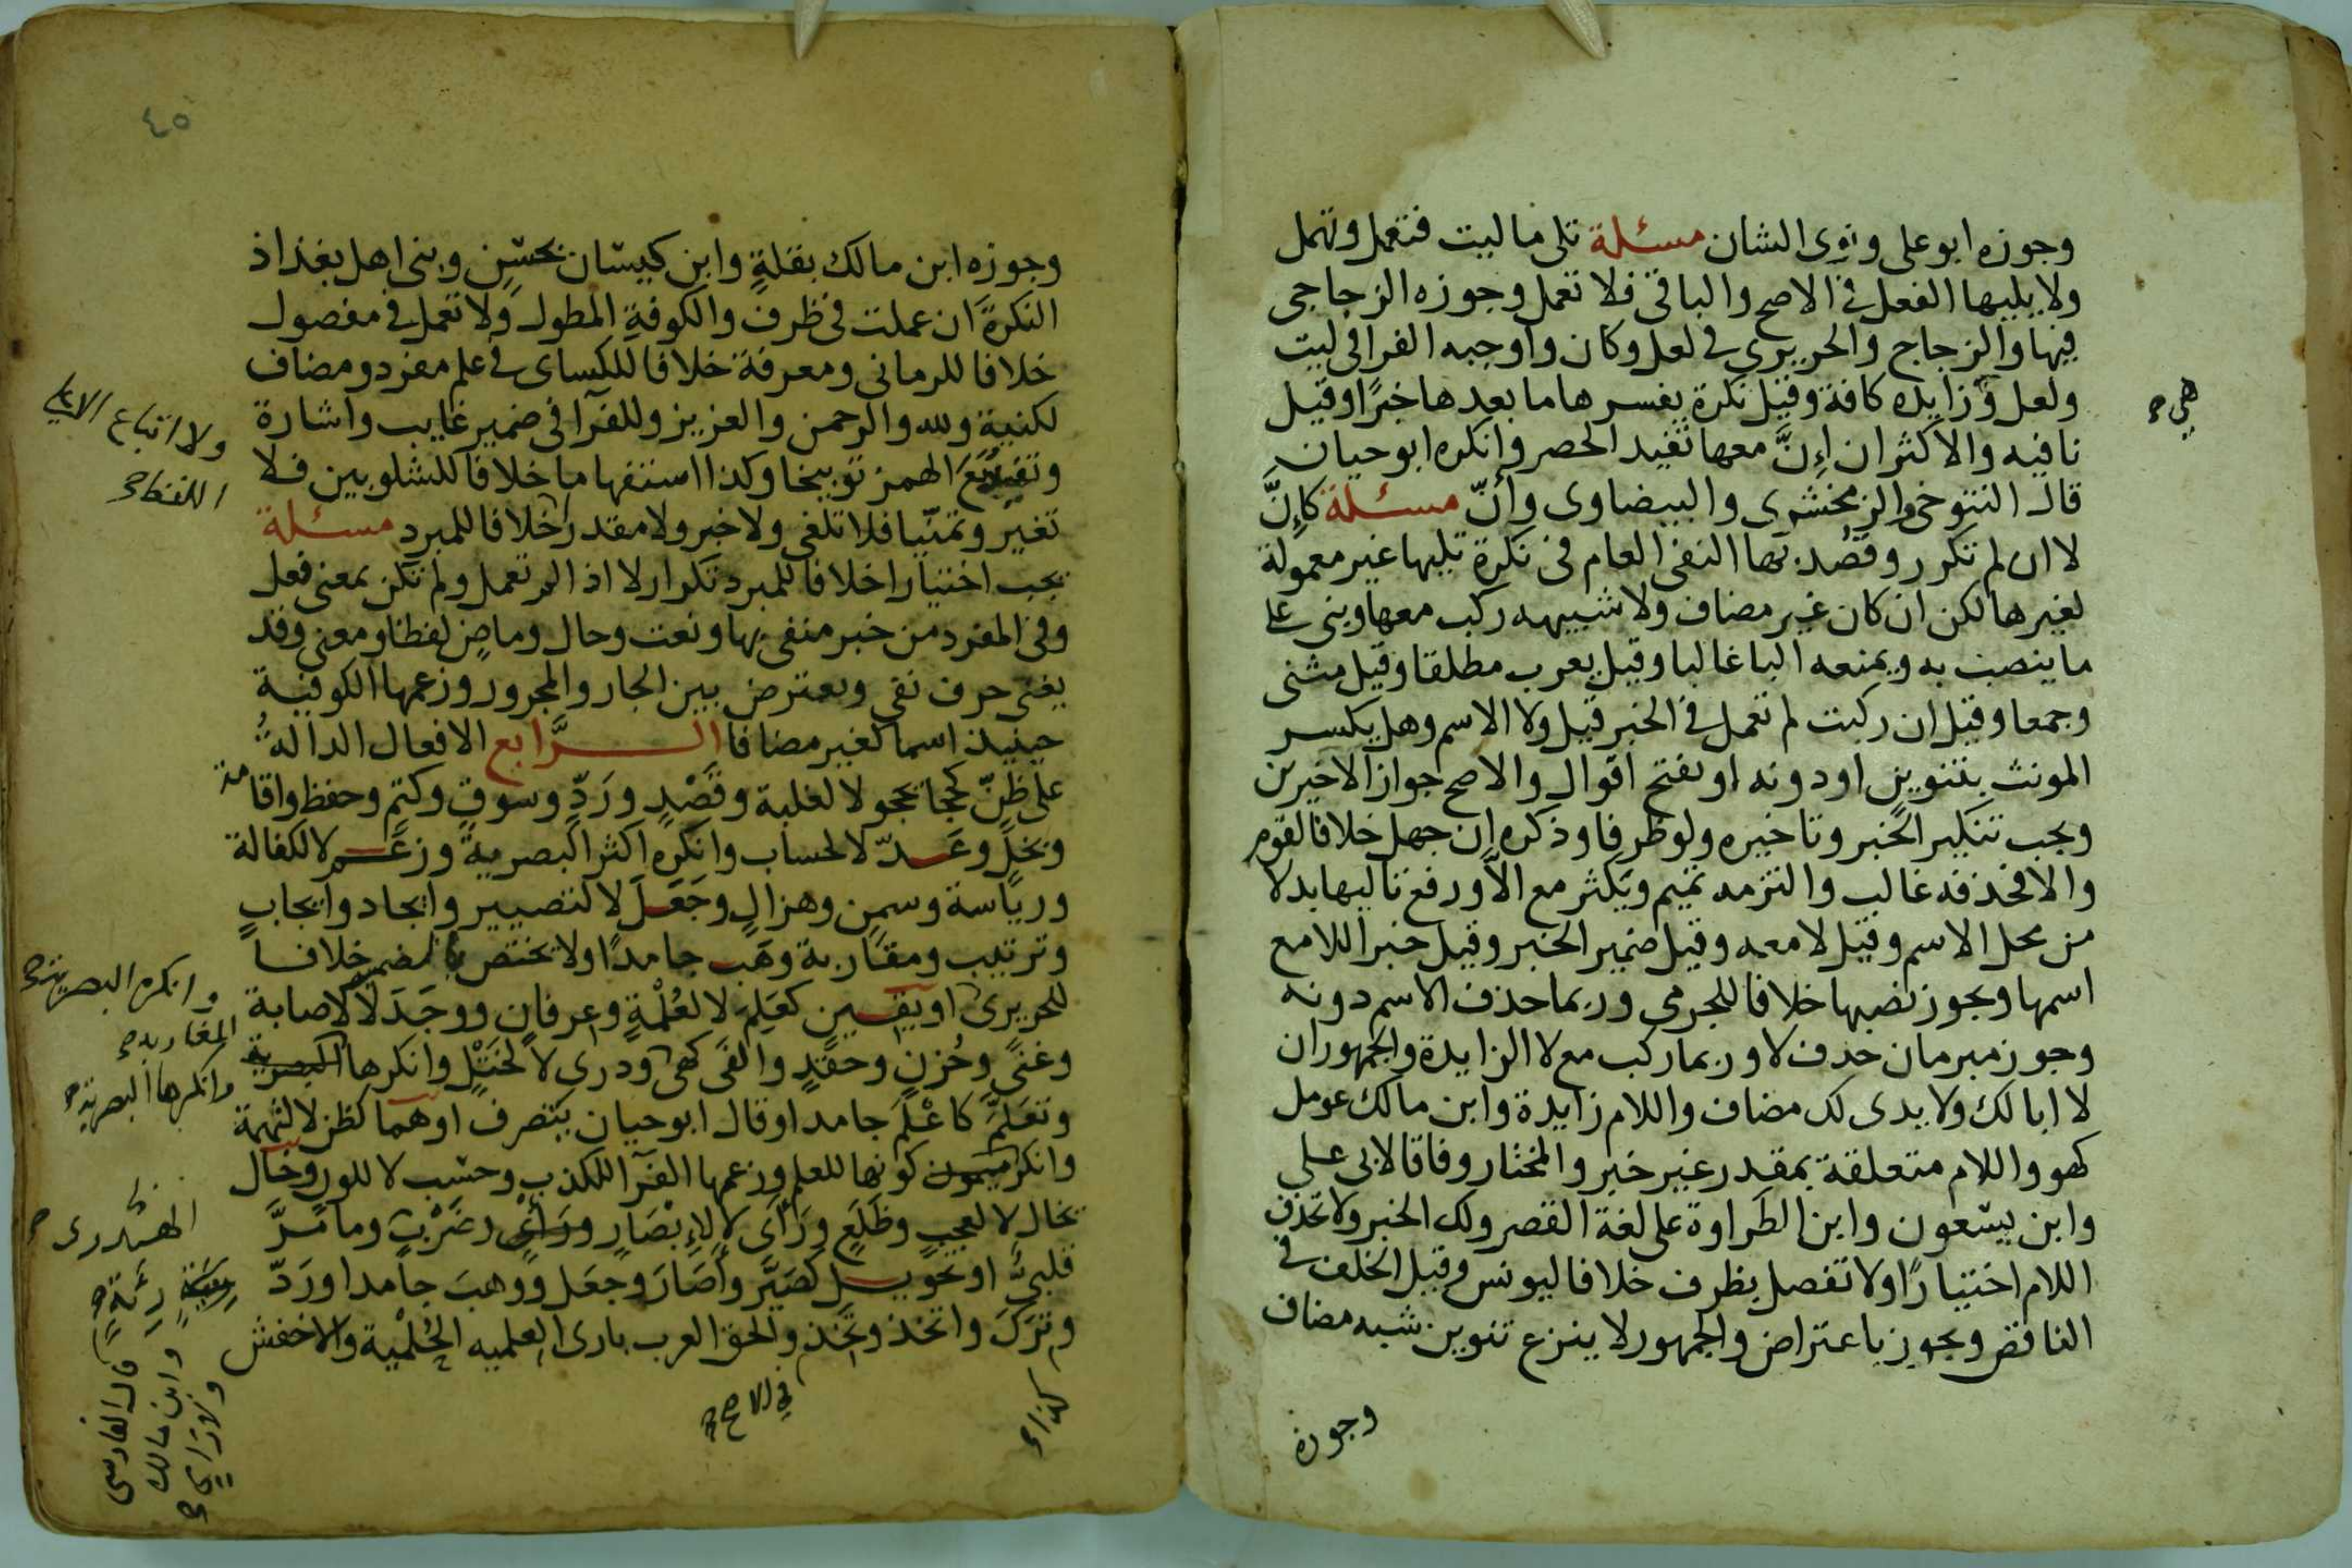 وجوزه ابو على ونوى الشان مسئلة تلى ما ليت فتعمل وتهمل
ولا يليها الفعل فى الاصح والباقى فلا تعمل وجوزه الزجاجى
فيها والزجاج والحريرى فى لعل وكان واوجبه الفرا فى ليت
ولعل وزايده كافة وقيل نكرة يفسرها ما بعدها خبرًا وقيل
نافيه والاكثر ان إنَّ معها تفيد الحصر وانكره ابو حيان
قال التنوخى والزمخشرى والبيضاوى وأنّ مسئلة كإنَّ
لا ان لم تكرر وقصد بها النفى العام فى نكرة تليها غير معمولة
لغيرها لكن ان كان غير مضاف ولا شبيهه ركب معها وبنى على
ما ينصب به ويمنعه البا غالبا وقيل يعرب مطلقا وقيل مثنى
وجمعا وقيل ان ركبت لم تعمل فى الخبر قيل ولا الاسم وهل يكسر
المونث بتنوين او دونه او يفتح اقوال والاصح جواز الاخيرين
ويجب تنكير الخبر وتاخيره ولو ظرفا وذكره إن جهل خلافا لقوم
والا فحذفه غالب والتزمه تميم ويكثر مع الا ورفع تاليها بدلا
من محل الاسم وقيل لا معه وقيل ضمير الخبر وقيل خبر اللا مع
اسمها ويجوز نصبها خلافا للجرمى وربما حذف الاسم دونه
وجوز مبرمان حذف لا وربما ركب مع لا الزايدة والجمهور ان
لا ابا لك ولا يدى لك مضاف واللام زايدة وابن مالك عومل
كهو واللام متعلقة بمقدر غير خبر والمختار وفاقا لابى على
وابن يسعون وابن الطراوة على لغة القصر ولك الخبر ولا تحذف
اللام اختيارًا ولا تفصل بظرف خلافا ليونس وقيل الخلف فى
الناقص ويجوز باعتراض والجمهور لا ينزع تنوين شبه مضاف
وجوزه
هى صح
٤٥
وجوزه ابن مالك بقلةٍ وابن كيسان بحسن وبنى اهل بغداذ
النكرة ان عملت فى ظرف والكوفة المطول ولا تعمل فى مفصول
خلافا للرمانى ومعرفة خلافا للكساى فى علم مفرد ومضاف
لكنية ولله والرحمن والعزيز وللفرّا فى ضمير غايب واشارة
الهمز توبيخا وكذا استفهاما خلافا للشلوبين فلا
تغير وتمنّيا فلا تلغى ولا خبر ولا مقدر خلافا للمبرد مسئلة
يجب اختيارا خلافا للمبرد تكرار لا اذا لم تعمل ولم تكن بمعنى فعل
وفى المفرد من خبر منفى بها ونعت وحال وماضٍ لفظا ومعنى وقد
يغنى حرف نفى ويعترض بين الجار والمجرور وزعمها الكوفية
حينيذ اسما كغير مضافا الـرَّابع الافعال الدالة
على ظنّ كحجا يحجو لا لغلبة وقصْدٍ وردٍّ وسوقٍ وكتمٍ وحفظ واقامة
وبخلٍ وعدّ لا لحساب وانكره اكثر البصرية وزعم لا لكفالة
ورياسة وسمنٍ وهزالٍ وجَعَلَ لا لتصيير وايجاد وايجابٍ
وترتيب ومقاربة وهَب جامدًا ولا يختص بالضمير خلافا
للحريرى او يقين كعَلِمَ لا لعُلْمةٍ وعرفانٍ ووجَدَ لا لاصابة
وغنىً وحُزنٍ وحقدٍ والفَى كهى ودرى لا لختْلٍ وانكرها البصرية
وتعَلّمْ كاعْلَمْ جامدا وقال ابو حيان يتصرف اوهما كظن لا لتهمة
وانكر كونها للعلم وزعمها الفرّا للكذب وحسب لا للون وخال
يخال لا لعجبٍ وظَلَعٍ ورَأى لا لإبْصَارٍ ورأىٍ وضَرْبٍ وما مَرَّ
قلبىٌّ او تحويل كصَيَّر وأصَارَ وجعَل ووهبَ جامدا وردّ
وترَكَ واتخذ وتَخِذ والحق العرب بارى العلميه الحُلْمية والاخفش
ولا اتباع
اللفظ صح
وانكره البصرية صح
المغاربه صح
وانكرها البصرية صح
رئةٍ صح
قال الفارسى
وابن مالك
ولا رَأىٍ
صح
فى الاصح صح